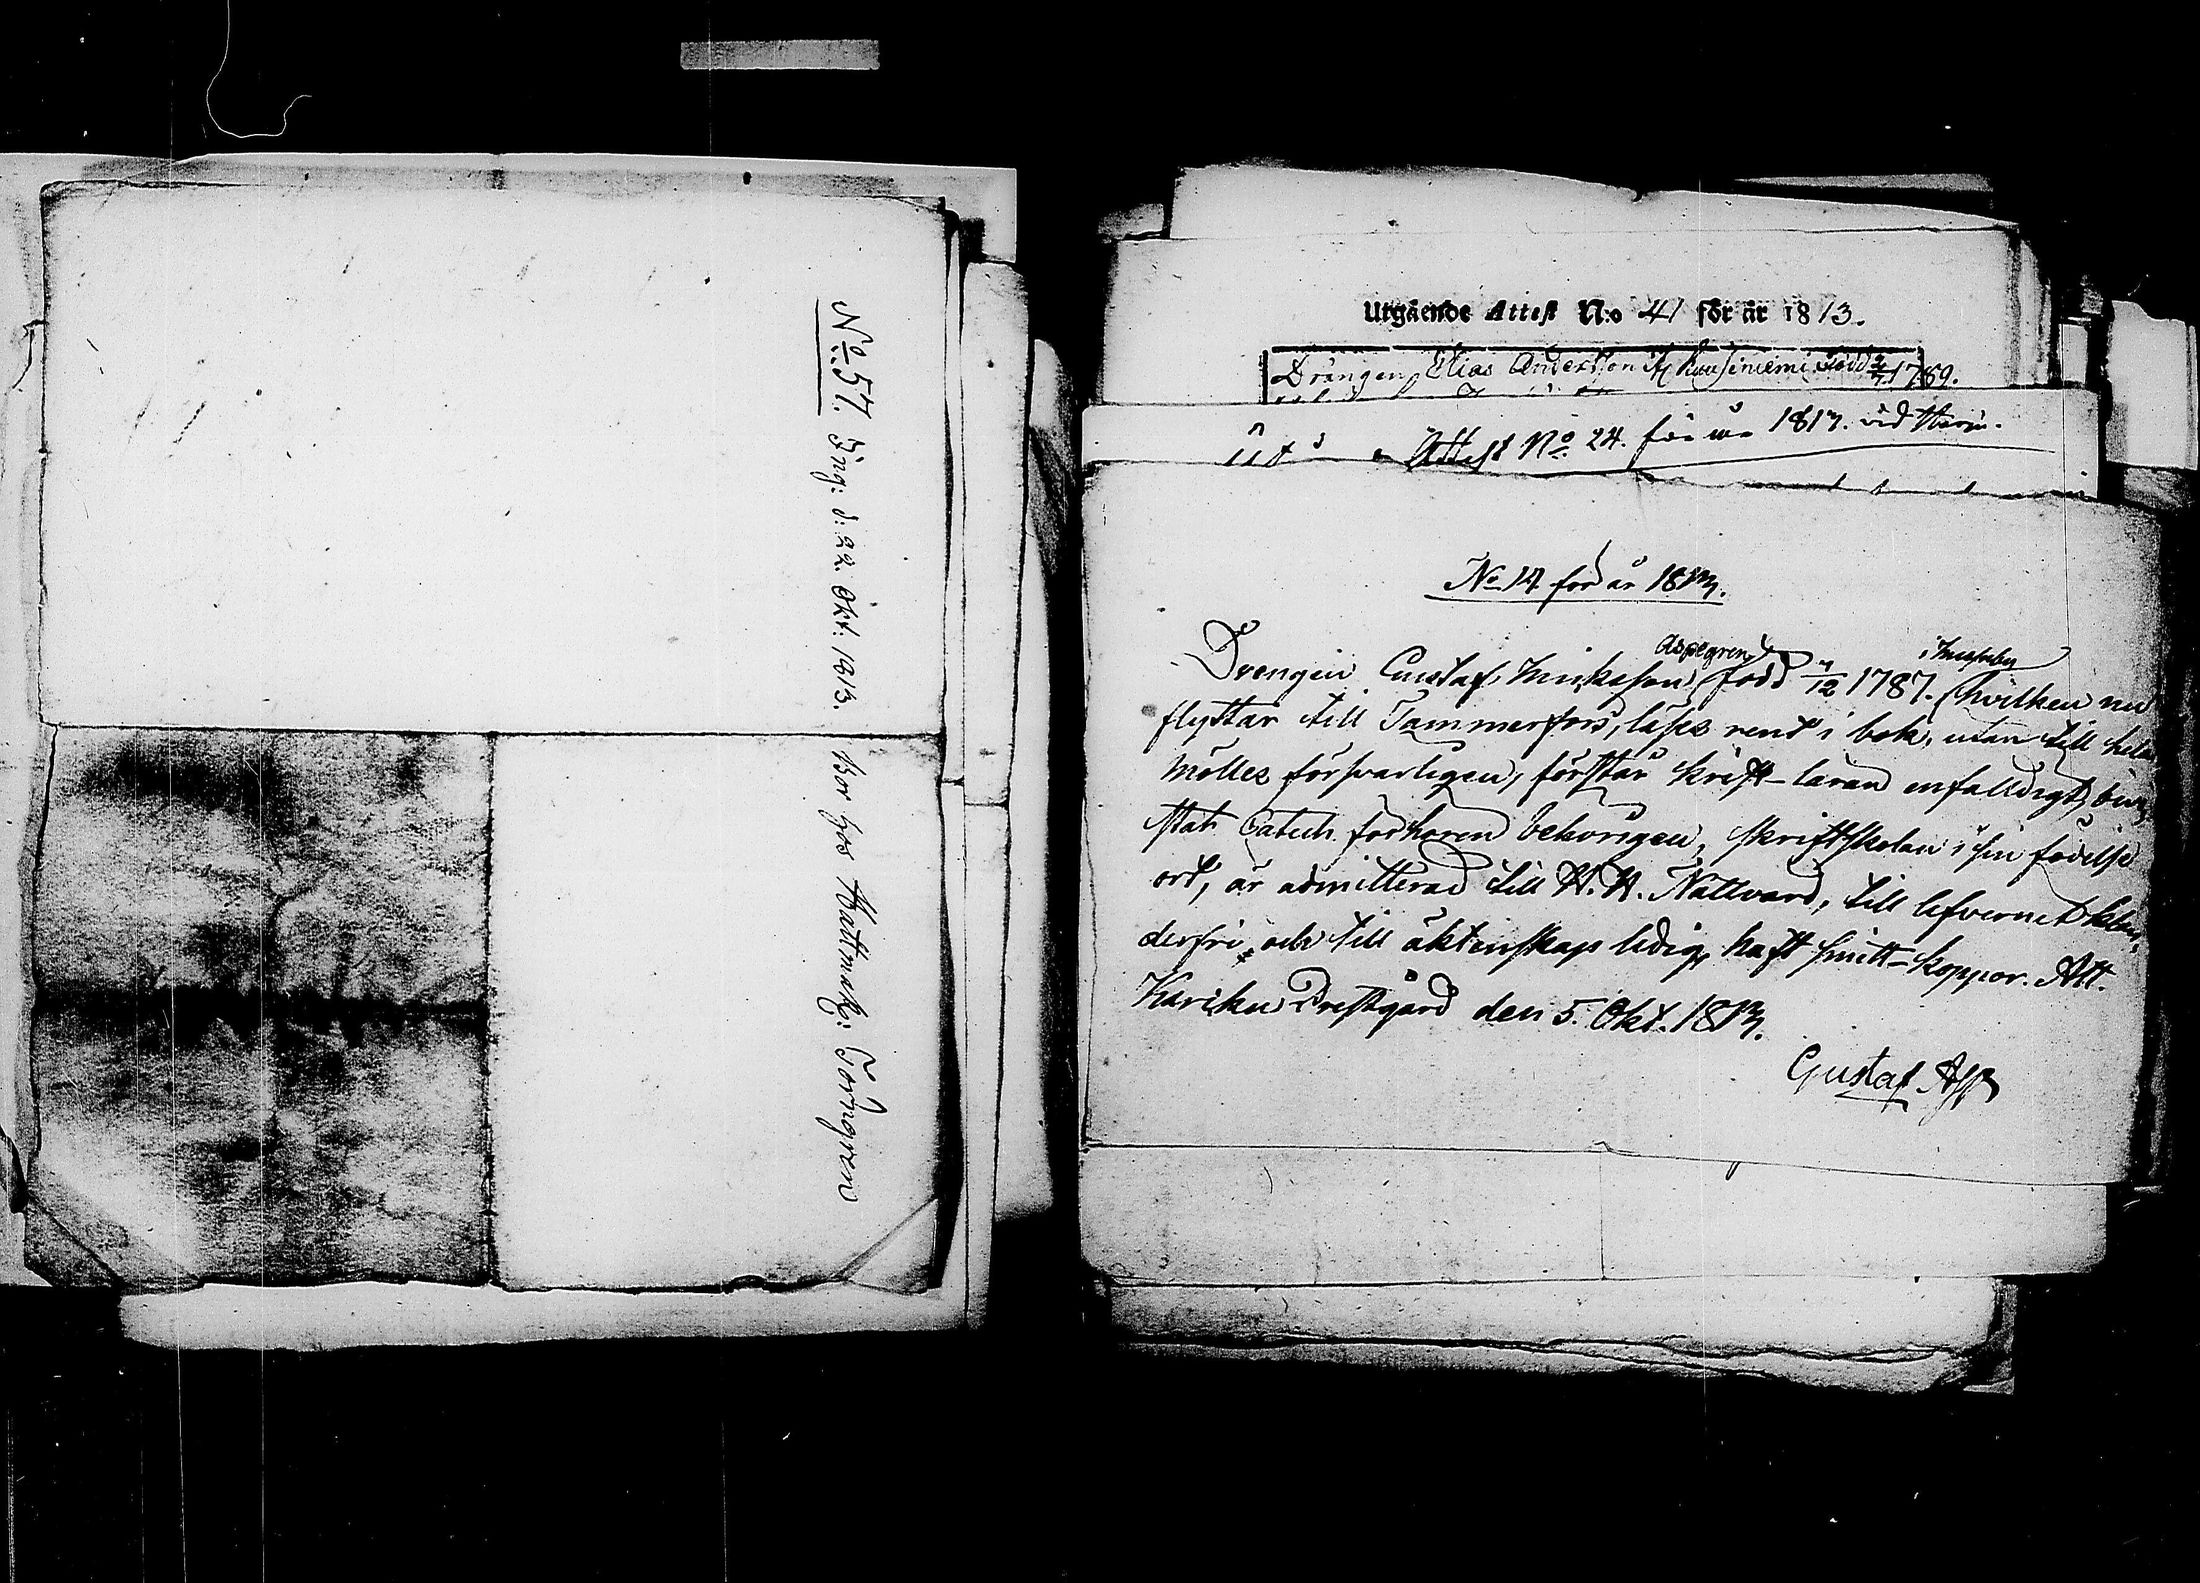 No 57. Ing: d: 22. Okt: 1813. Bor hos Hattmak: Törngren
Utgående Attest N:o 41 för år 1813.
Drängen Elias Andersson född 1789.
Attest No 24. för år 1813. vid
No 14 för år 1813.
Aspegren
Drengen Gustaf Hinriksson född 12 1787. hvilken nu
flyttar till Tammerfors, läser rent i bok, utan till hela
Mölles försvarligen, förstår krist-läran enfalldigt, bevi-
stat Catech. förhören behörigen, skriftskolan i sin födelse
ort, är admitterad till H. H. Nattvard, till lefvernet klan-
derfri och till äktenskap ledig, haft smitt-koppor. Att.
Kariku Prestgård den 5. Okt. 1813.
Gustaf Asp